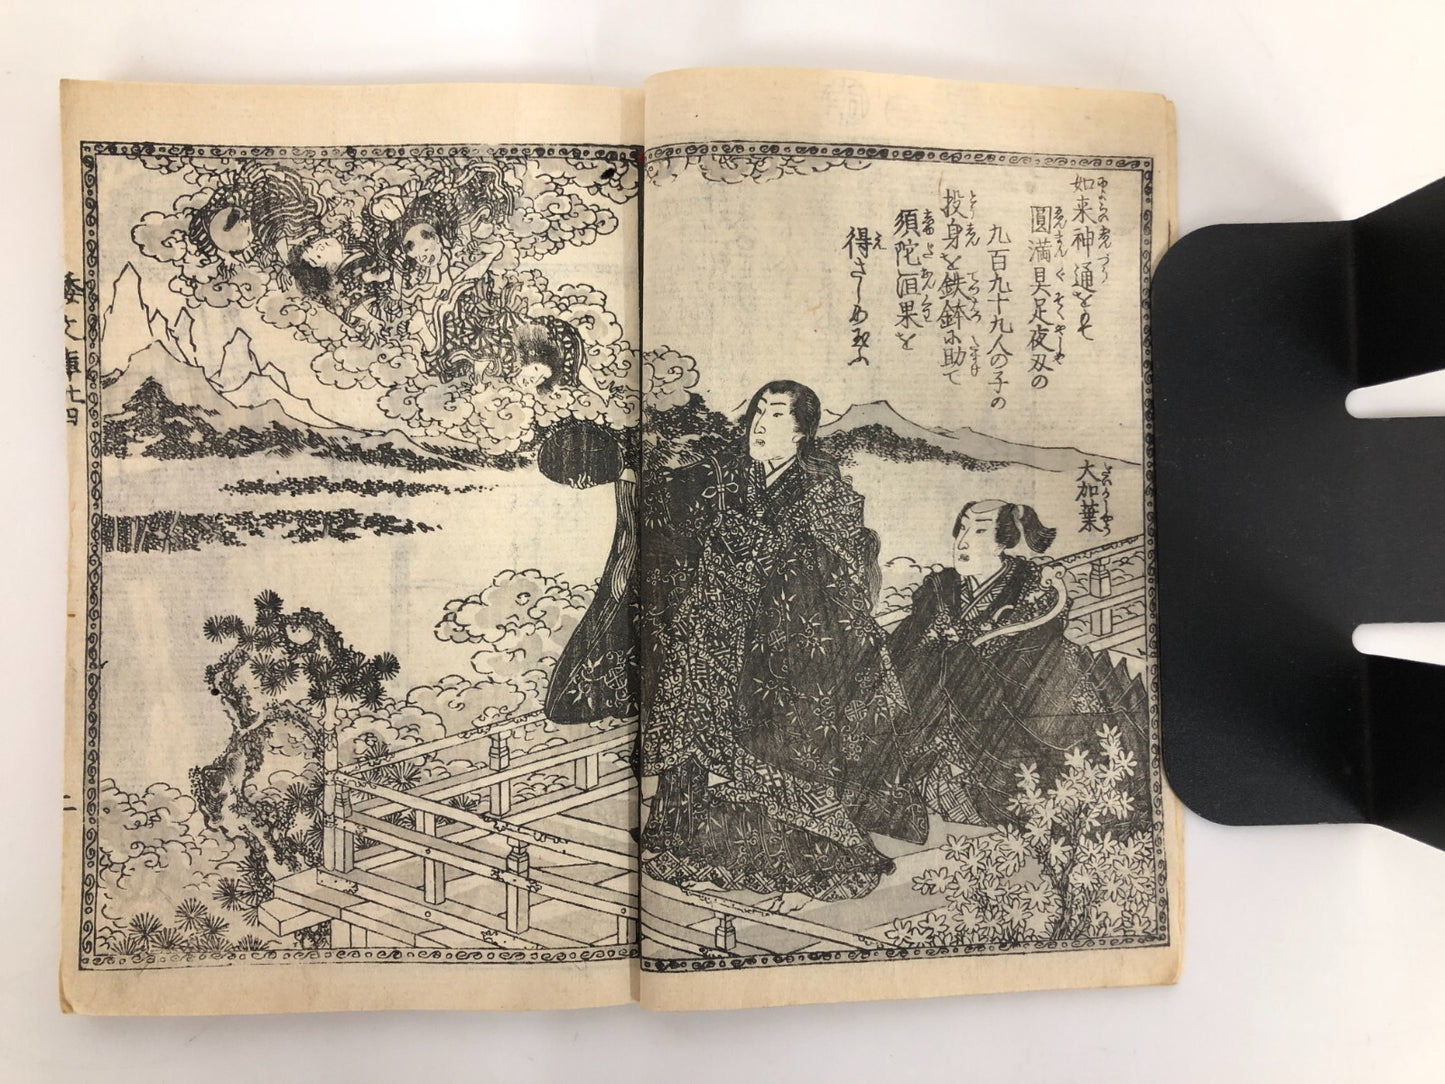 如来神通をもて
圓満具足夜刃の
九百九十九人の子の
投身を鉄鉢に助て
須陀洹果を
得さしめ玉ふ
大加葉
倭文庫廿四
二